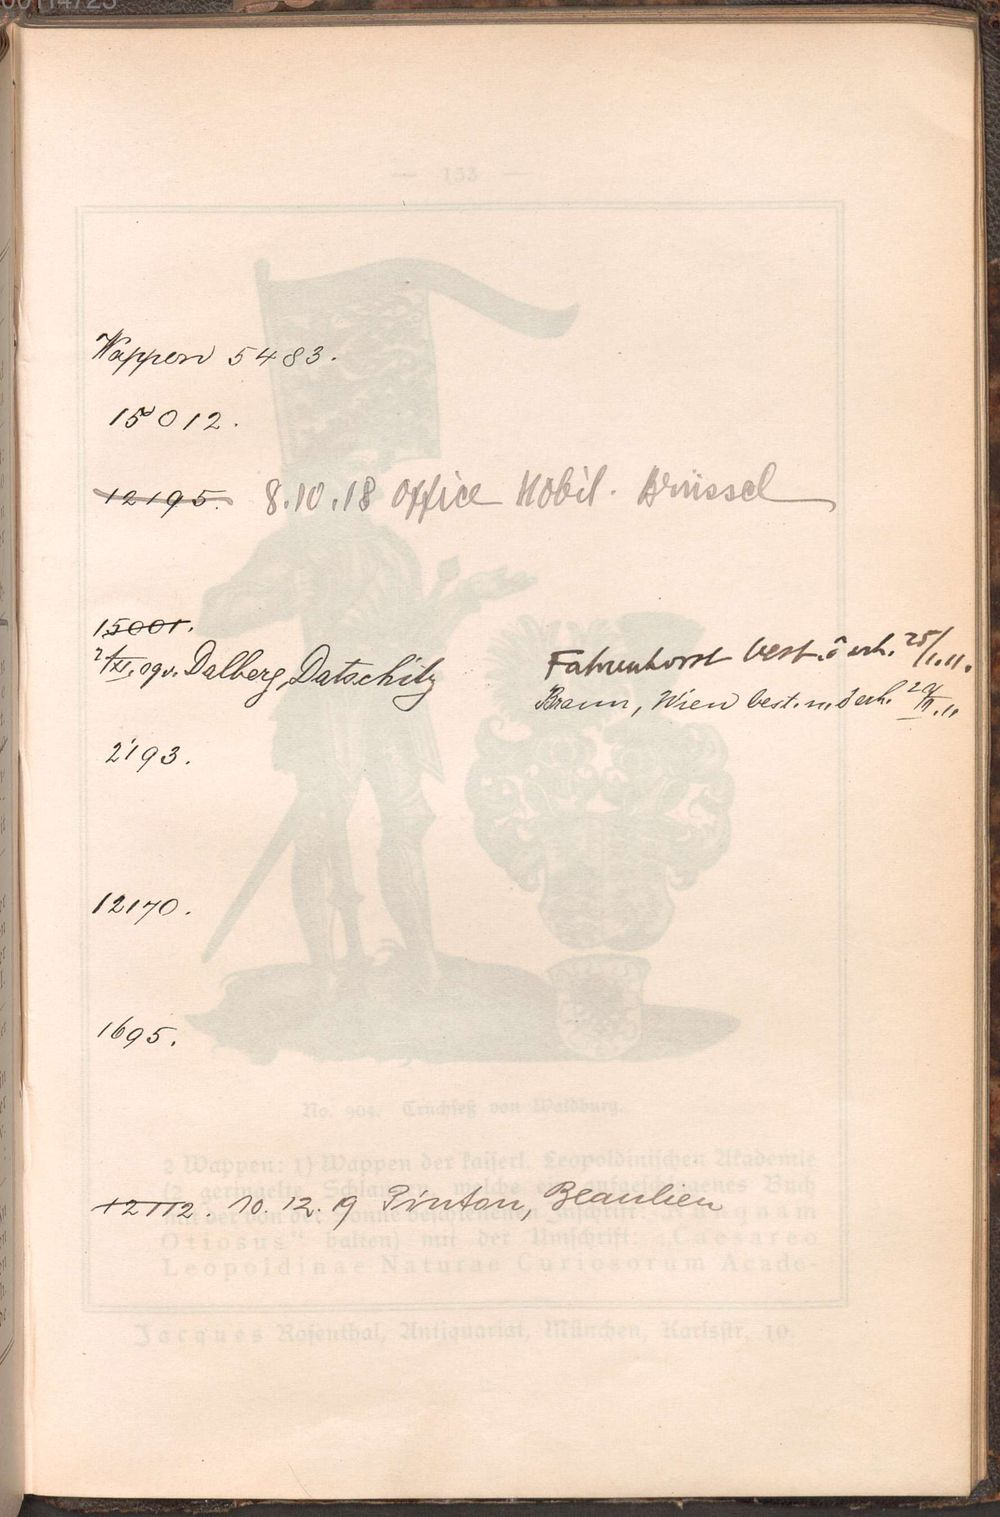 00114725
— 153 —
Wappen 5483.
15012.
12195. 8.10.18 Office Nobil. Brüssel
15001.
2/XI. 09 v. Dalberg, Datschitz
Fahrenhorst best. ö erh. 25/1.11.
Braun, Wien best. u. ö erh. 20/II.11
2193.
12170.
1695.
No. 904. Truchseß von Waldburg.
2 Wappen: 1) Wappen der kaiserl. Leopoldinischen Akademie
(2 geringelte Schlangen, welche ein aufgeschlagenes Buch
mit der von der Sonne beschienenen Inschrift: „Nunquam
12112. 10.12.19 Pinton, Beaulieu
Otiosus" halten) mit der Umschrift: „Caesareo
Leopoldinae Naturae Curiosorum Acade-
Jacques Rosenthal, Antiquariat, München, Karlstr. 10.